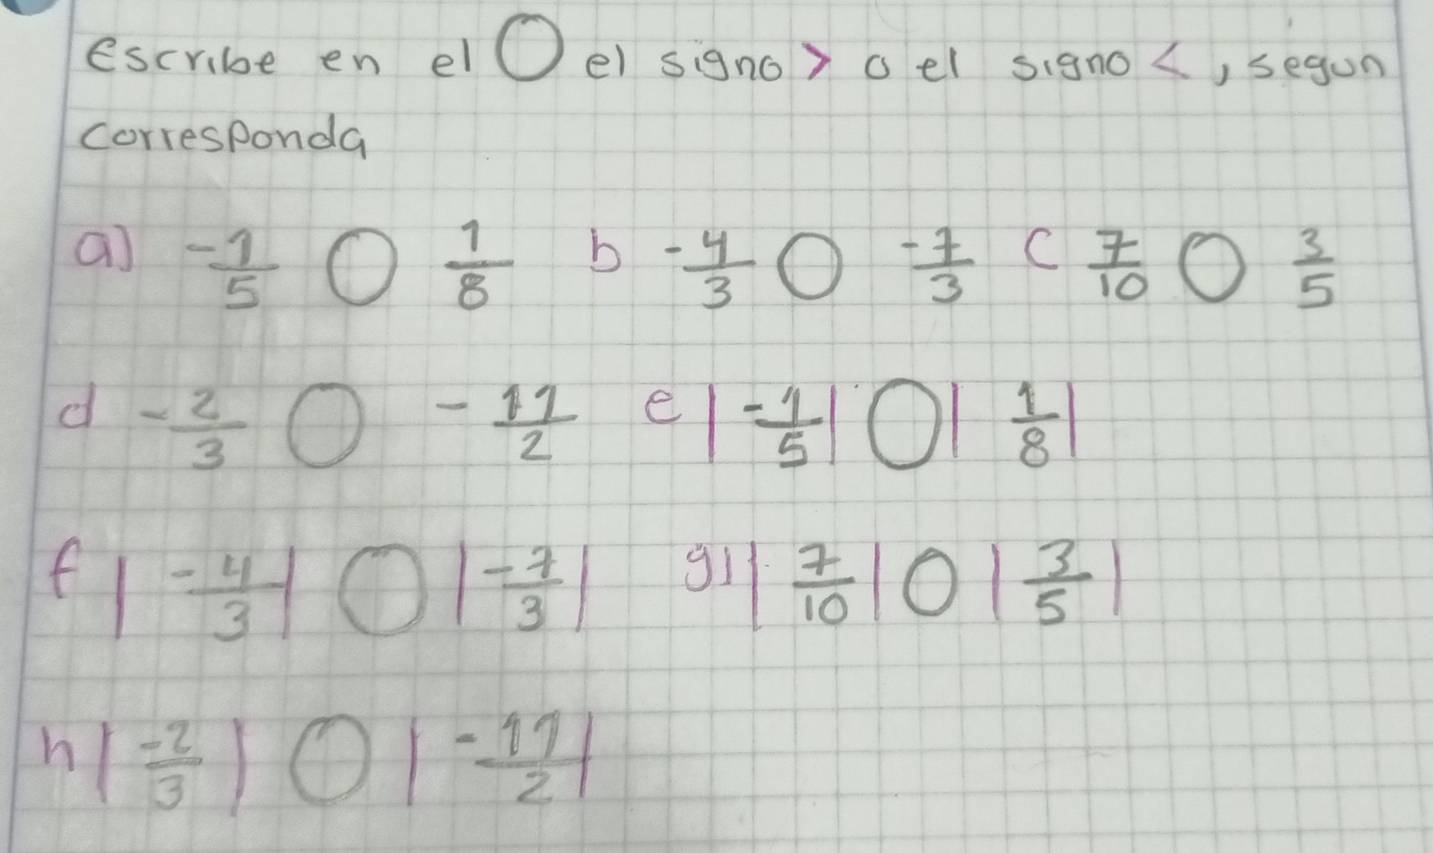 escribe en el ◯ el signo > o el signo <, segun
corresponda
a) -1/5 ◯ 1/8 b -4/3 ◯ -7/3 c 7/10 ◯ 3/5
d -2/3 ◯ -11/2 e |-1/5| ◯ |1/8|
f |-4/3| ◯ |-7/3| g) |7/10| ◯ |3/5|
h |-2/3| ◯ |-11/2|